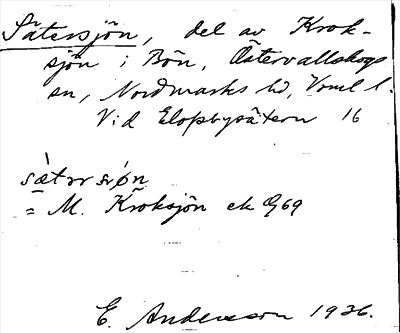 Sätersjön, del av Krok-
sjön i Bön, Östervallskogs
sn, Nordmarks hd, Vrml l.
Vid Elopbysätern 16
sætər ʂøn
= M. Kroksjön ek G69
E. Andersson 1936.